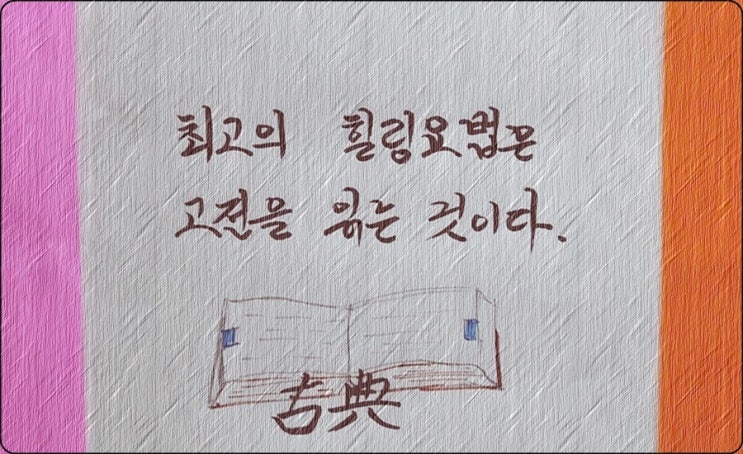 최고의 힐링요법은
고전을 읽는 것이다.
古典